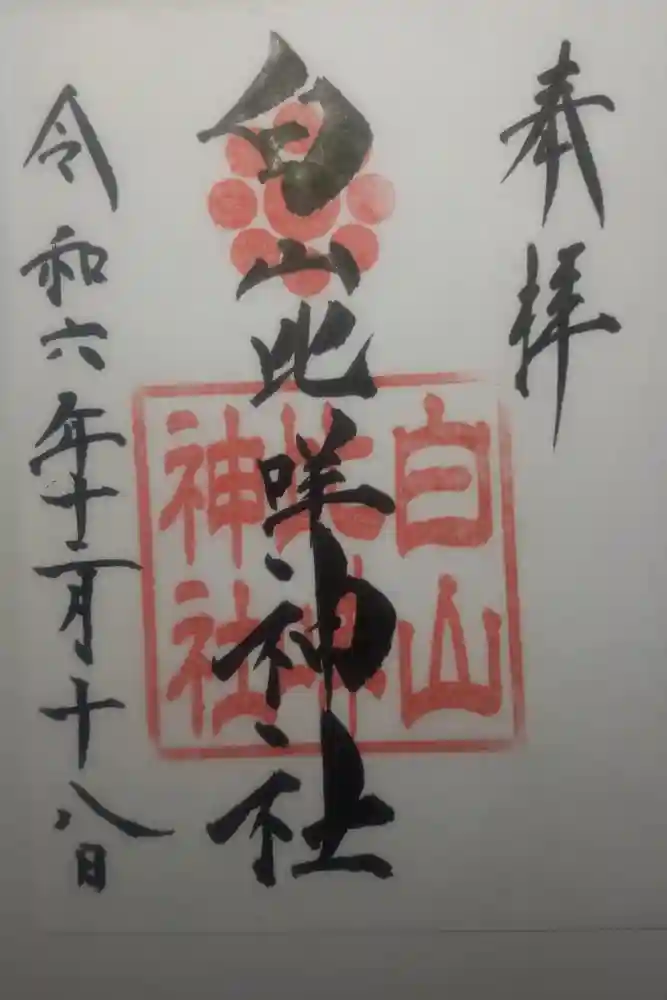 奉拝
白山比咩神社
令和六年十二月十八日
白山
神社